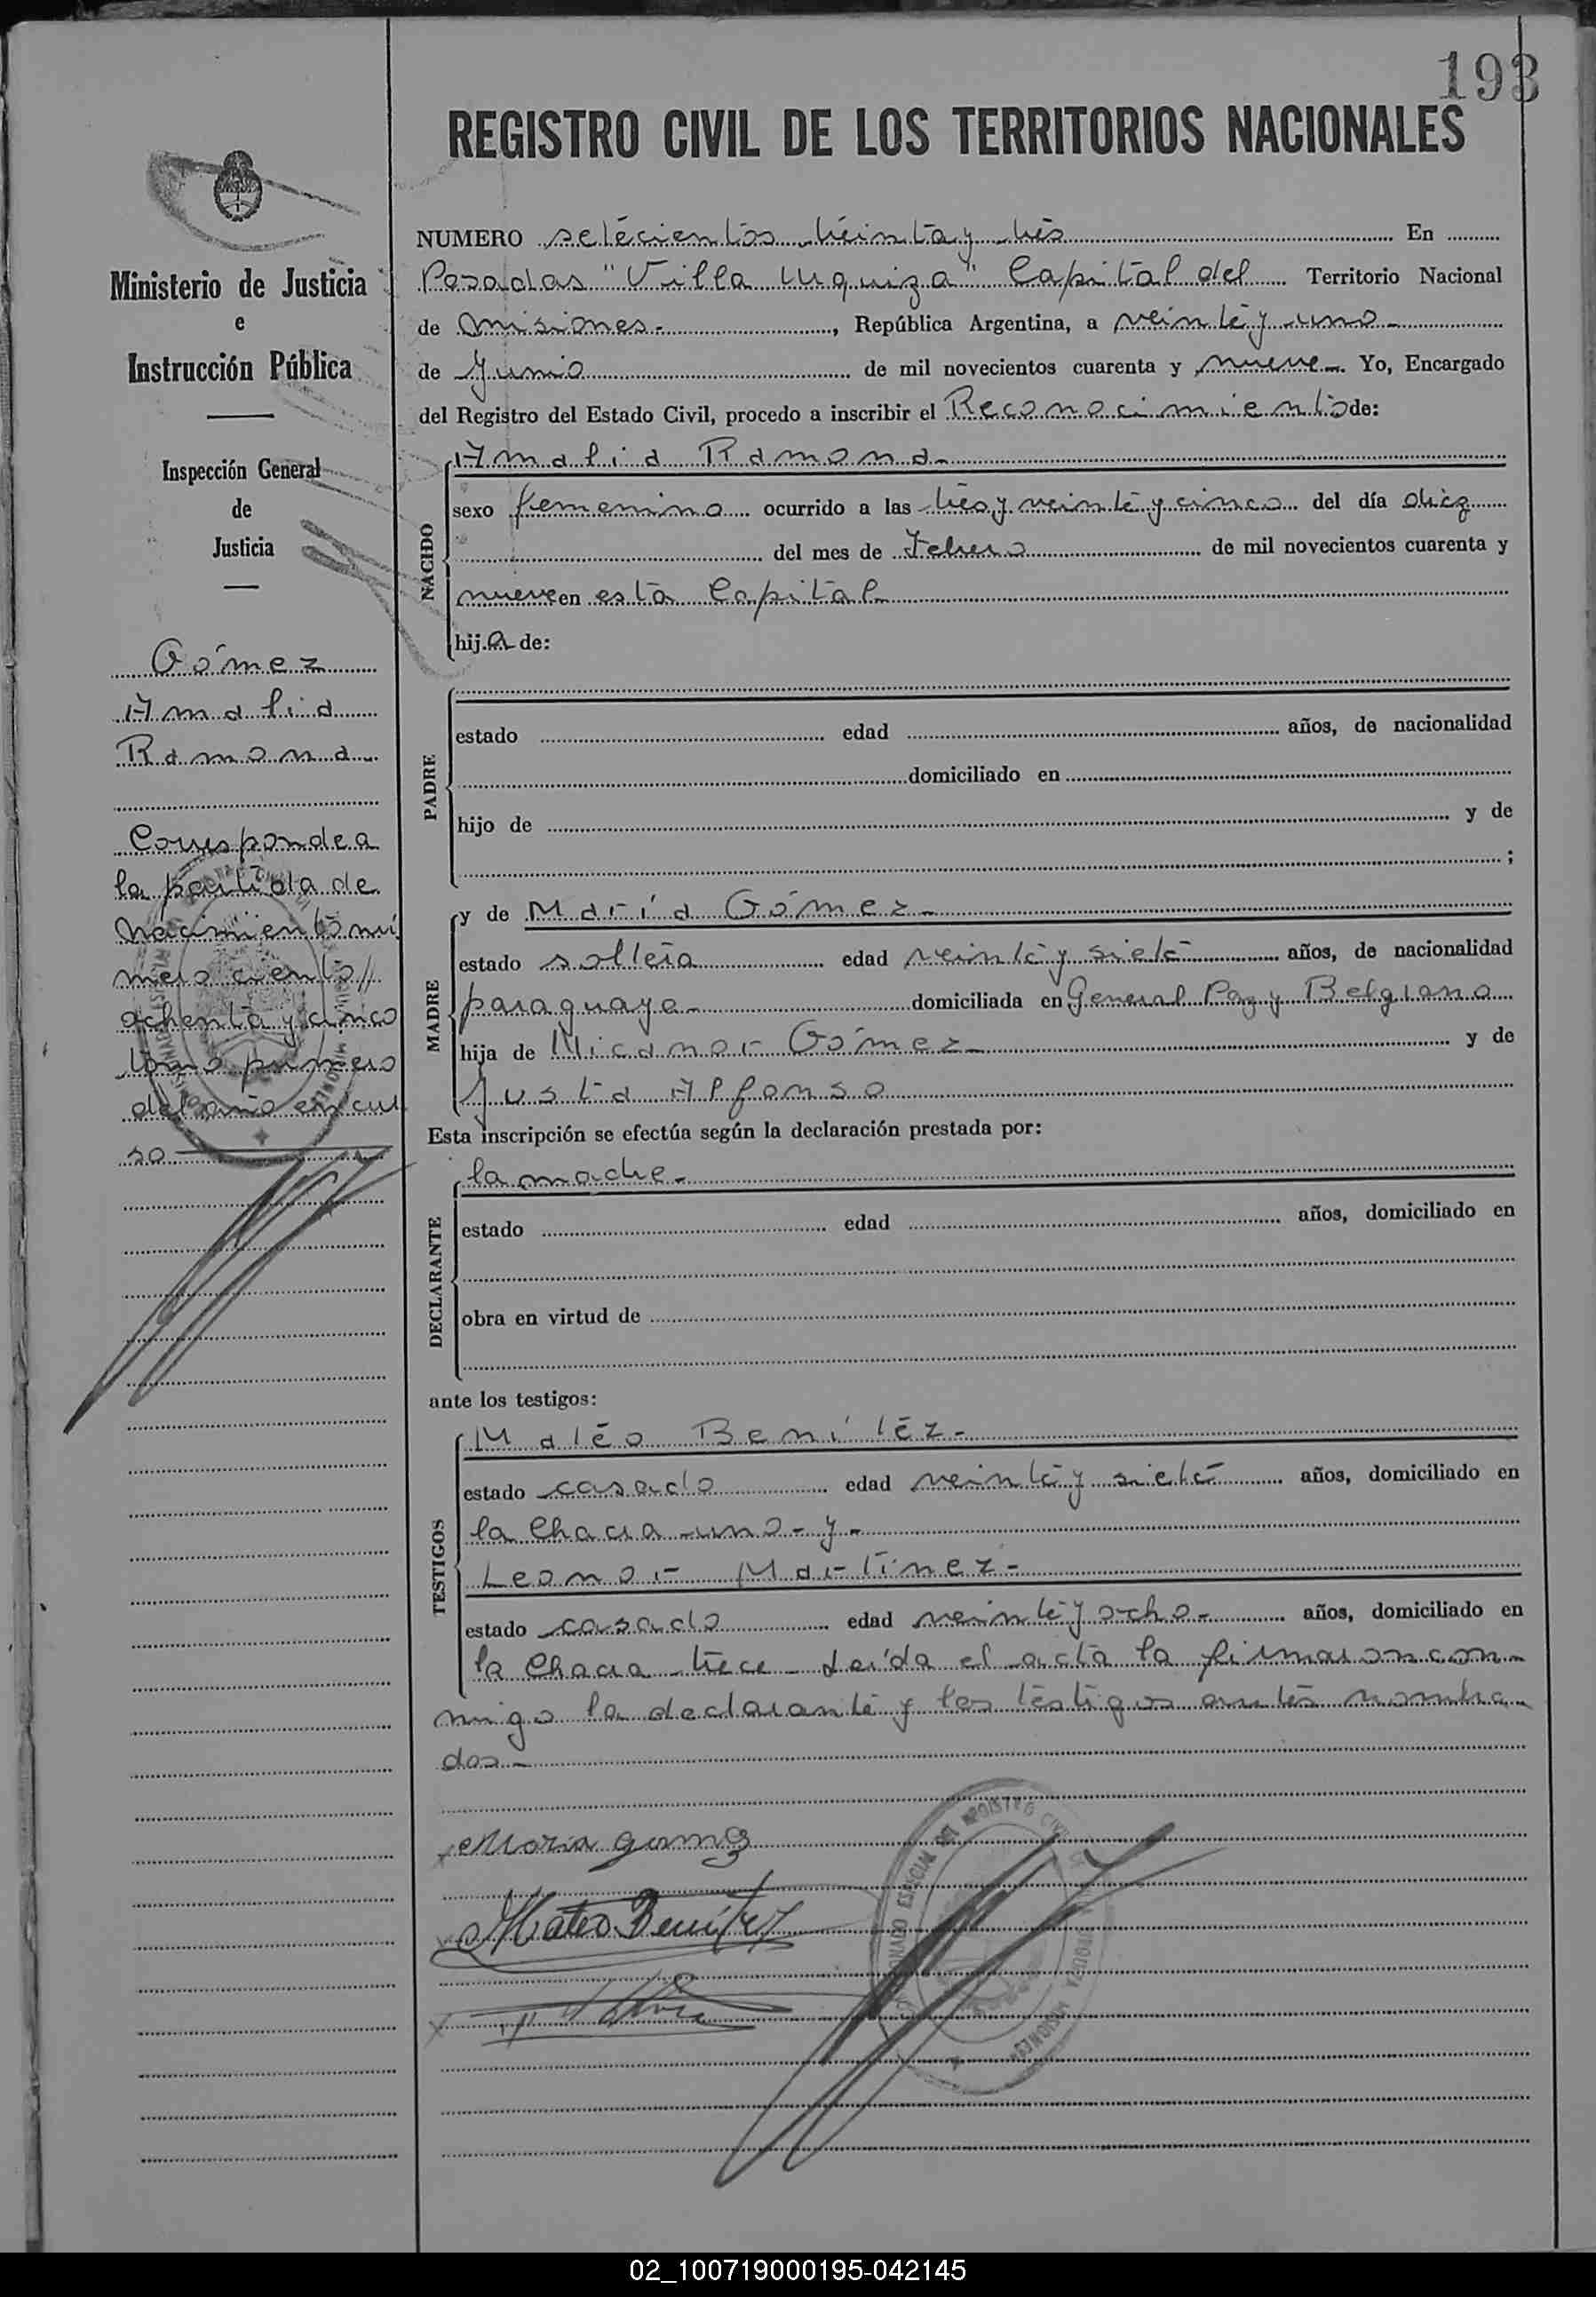 193
REGISTRO CIVIL DE LOS TERRITORIOS NACIONALES
Ministerio de Justicia
e
Instrucción Pública
Inspección General
de
Justicia
Gómez
Amalia
Ramona
Corresponde a
la partida de
nacimiento nú
mero ciento //
ochenta y cinco
tomo primero
del año en cur
so
NUMERO setecientos treinta y tres En
Posadas "Villa Urquiza" Capital del Territorio Nacional
de Misiones.-, República Argentina, a veinte y uno-
de Junio de mil novecientos cuarenta y nueve-. Yo, Encargado
del Registro del Estado Civil, procedo a inscribir el Reconocimiento de:
NACIDO
Amalia Ramona-
sexo femenino ocurrido a las tres y veinte y cinco del día diez
del mes de Febrero de mil novecientos cuarenta y
nueve en esta Capital
hij.a de:
PADRE
estado edad años, de nacionalidad
domiciliado en
hijo de y de
;
MADRE
y de María Gómez-
estado soltera edad veinte y siete años, de nacionalidad
paraguaya- domiciliada en General Paz y Belgrano
hija de Nicanor Gómez- y de
Justa Alfonso
Esta inscripción se efectúa según la declaración prestada por:
DECLARANTE
la madre-
estado edad años, domiciliado en
obra en virtud de
ante los testigos:
TESTIGOS
Matéo Benítez-
estado casado edad veinte y siete años, domiciliado en
la Chacra uno- y-
Leonor Martínez-
estado casado edad veinte y ocho- años, domiciliado en
la Chacra trece- Leída el acta la firmaron con-
migo la declarante y los testigos antes nombra-
dos-
Maria gomez
Mateo Benítez
02_100719000195-042145